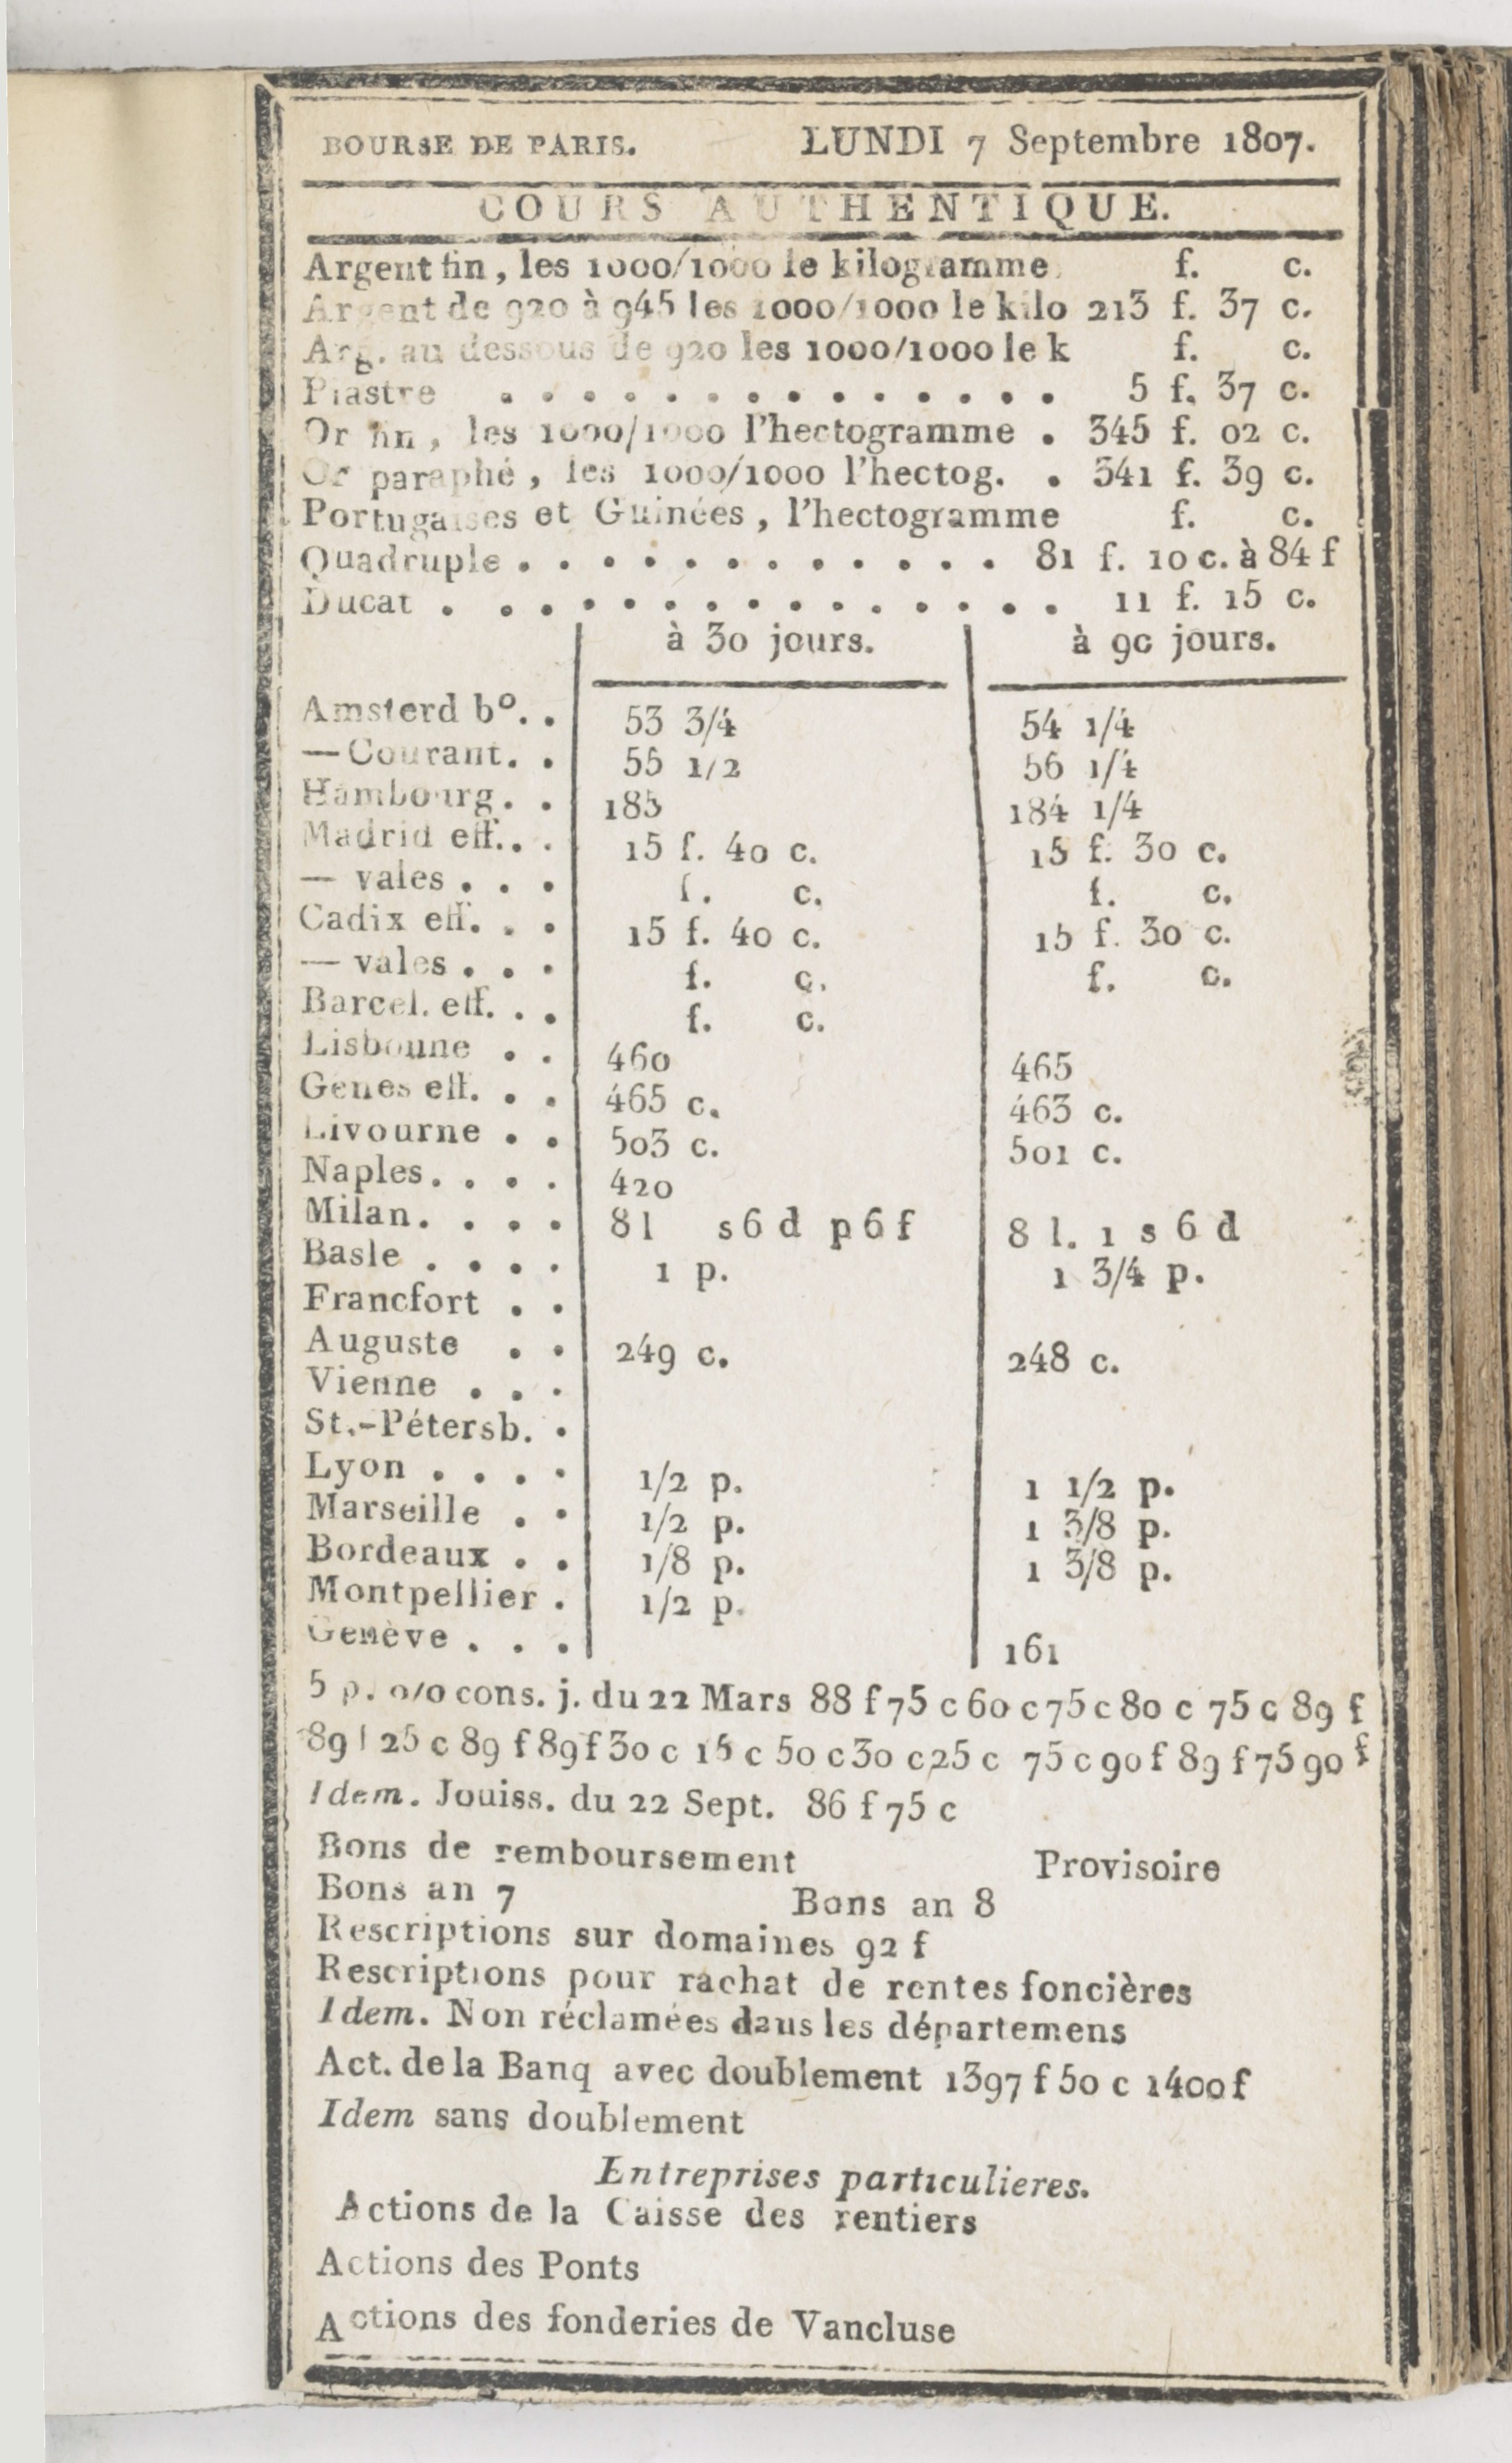 BOURSE DE PARIS. LUNDI 7 Septembre 1807.
COURS AUTHENTIQUE.
Argent fin, les 1000/1000 le kilogramme f. c.
Argent de 920 à 945 les 1000/1000 le kilo 213 f. 37 c.
Arg. au dessous de 920 les 1000/1000 le k f. c.
Piastre . . . . . . . . . . . . . . 5 f. 37 c.
Or fin, les 1000/1000 l'hectogramme . 345 f. 02 c.
Or paraphé, les 1000/1000 l'hectog. . 341 f. 39 c.
Portugaises et Guinées, l'hectogramme f. c.
Quadruple . . . . . . . . . . . . 81 f. 10 c. à 84 f
Ducat . . . . . . . . . . . . . . . 11 f. 15 c.
à 30 jours. à 90 jours.
Amsterd bº. . 53 3/4 54 1/4
—Courant. . 55 1/2 56 1/4
Hambourg. . 185 184 1/4
Madrid eff.. . 15 f. 40 c. 15 f. 30 c.
— vales . . . f. c. f. c.
Cadix eff. . . 15 f. 40 c. 15 f. 30 c.
— vales . . . f. c. f. c.
Barcel. eff. . . f. c.
Lisbonne . . 460 465
Genes eff. . . 465 c. 463 c.
Livourne . . 503 c. 501 c.
Naples. . . . 420
Milan. . . . 8 l s 6 d p 6 f 8 l. 1 s 6 d
Basle . . . . 1 p. 1 3/4 p.
Francfort . .
Auguste . . 249 c. 248 c.
Vienne . . .
St.-Pétersb. .
Lyon . . . . 1/2 p. 1 1/2 p.
Marseille . . 1/2 p. 1 3/8 p.
Bordeaux . . 1/8 p. 1 3/8 p.
Montpellier . 1/2 p.
Genève . . . 161
5 p. 0/0 cons. j. du 22 Mars 88 f 75 c 60 c 75 c 80 c 75 c 89 f
89 f 25 c 89 f 89 f 30 c 15 c 50 c 30 c 25 c 75 c 90 f 89 f 75 90 f
Idem. Jouiss. du 22 Sept. 86 f 75 c
Bons de remboursement Provisoire
Bons an 7 Bons an 8
Rescriptions sur domaines 92 f
Rescriptions pour rachat de rentes foncières
Idem. Non réclamées daus les départemens
Act. de la Banq avec doublement 1397 f 50 c 1400 f
Idem sans doublement
Entreprises particulieres.
Actions de la Caisse des rentiers
Actions des Ponts
Actions des fonderies de Vancluse